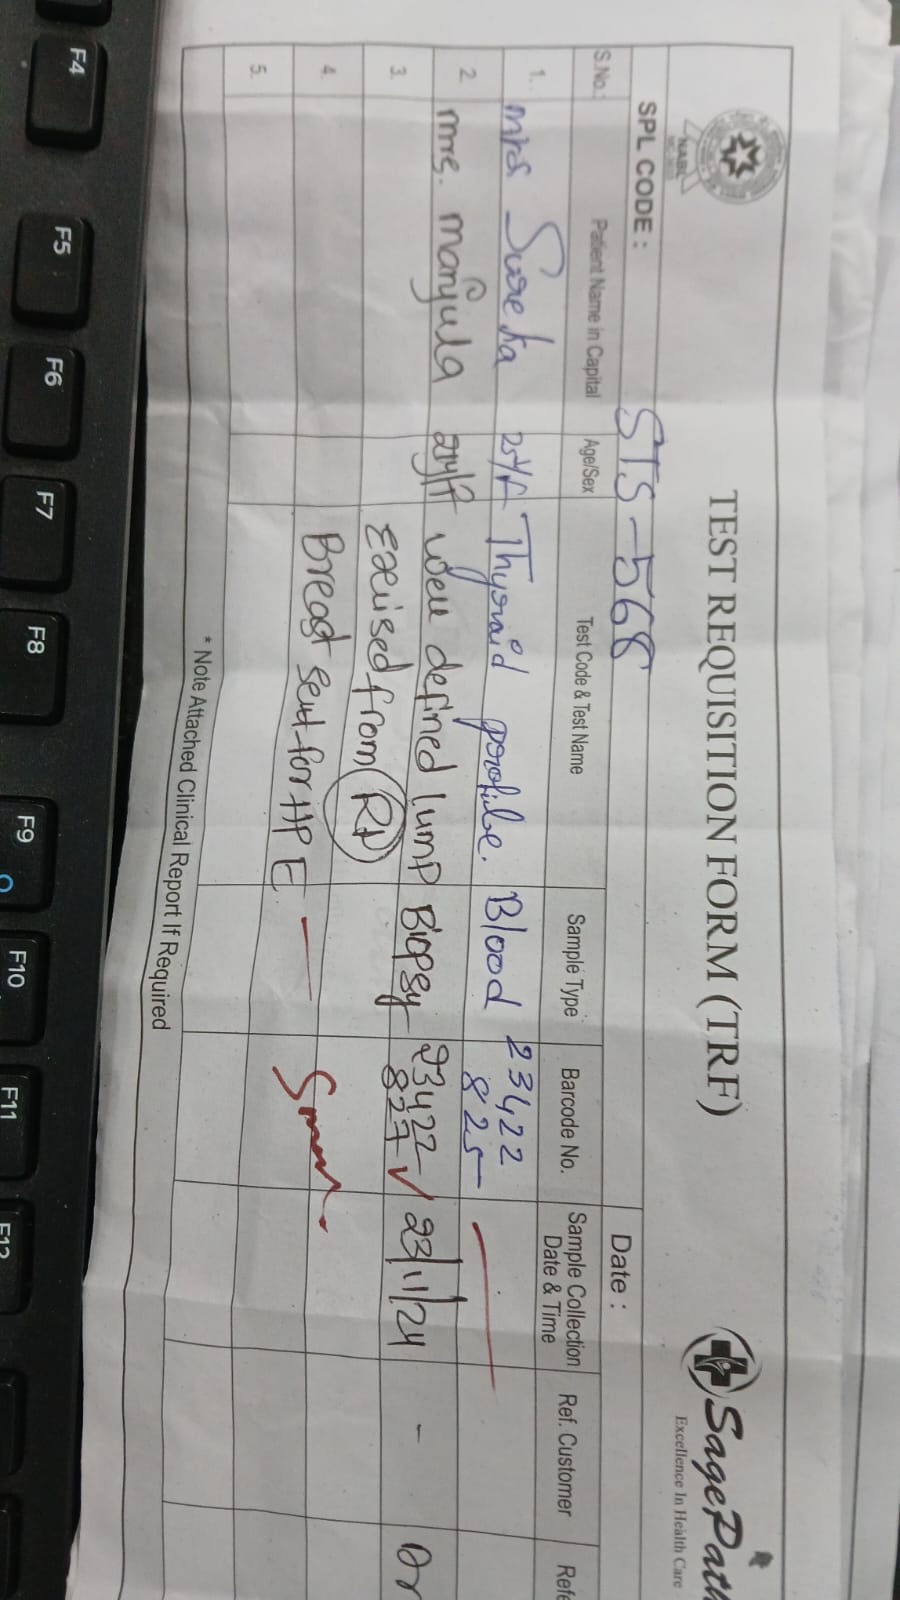 TEST REQUISITION FORM (TRF)
SagePath
Excellence In Health Care
NABL
SPL CODE : STS-568
Date :
S.No. Patient Name in Capital Age/Sex Test Code & Test Name Sample Type Barcode No. Sample Collection Date & Time Ref. Customer Refe
1. Mrs Sureka 25y/F Thyroid profile. Blood 23422 825
2. Mrs. Manjula 21y/F Well defined lump Biopsy 23422 827 23/11/24 - Dr
3. Excised from Rt
4. Breast sent for HPE
5.
* Note Attached Clinical Report If Required
F4
F5
F6
F7
F8
F9
F10
F11
F12